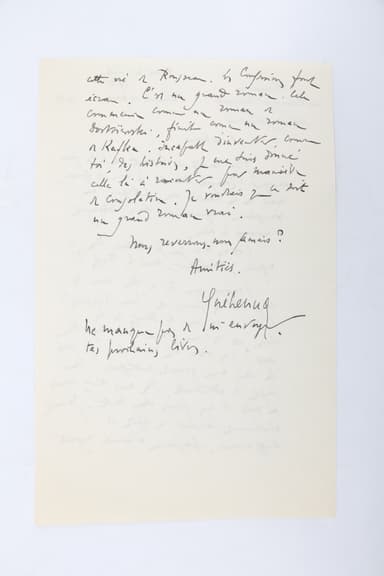 cette vie de Rousseau. les Confessions font
écran. C'est un grand roman. Cela
commence comme un roman de
Dostoïewski, finit comme un roman
de Kafka. incapable d'inventer, comme
toi, des histoires, je me suis donné
celle là à raconter, par manière
de consolation. Je voudrais que ce soit
un grand roman vrai.
Nous reverrons-nous jamais?
Amitiés.
Guéhenno
Ne manque pas de m'envoyer
tes prochains livres.